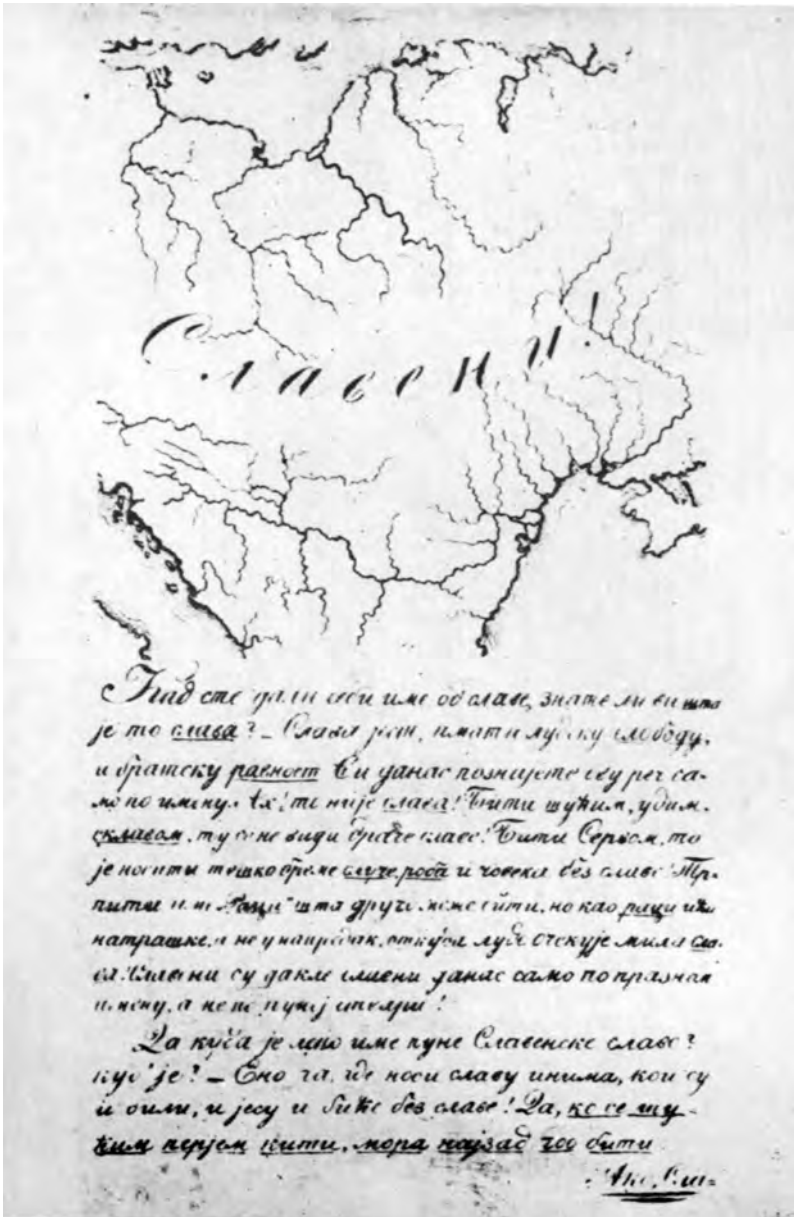 Славени!
Кад сте дали себи име од славе, знате ли ви шта
је то слава? – Слава јест, имати лудску слободу,
и братску равност Ви данас познајете ову реч са-
мо по имену. Ах! то није слава! Бити туђим, удим,
склавом, ту се не види браће славе! Бити Сербом, то
је носити тешко бреме слуге, роба и човека без славе! Тр-
пити име шта друго може бити, но као раци ићи
натрашке, а не у напредак, откуда луде очекује мила сла-
ва. Славени су дакле славени данас само по празном
имену, а не по пуној
Да куда је лепо име пуне Славенске славе?
куд' је? – Ено га, где носи славу инима, кои су
и били, и јесу и биће без славе! Да, ко се ту-
ђим перјем кити, мора најзад го бити